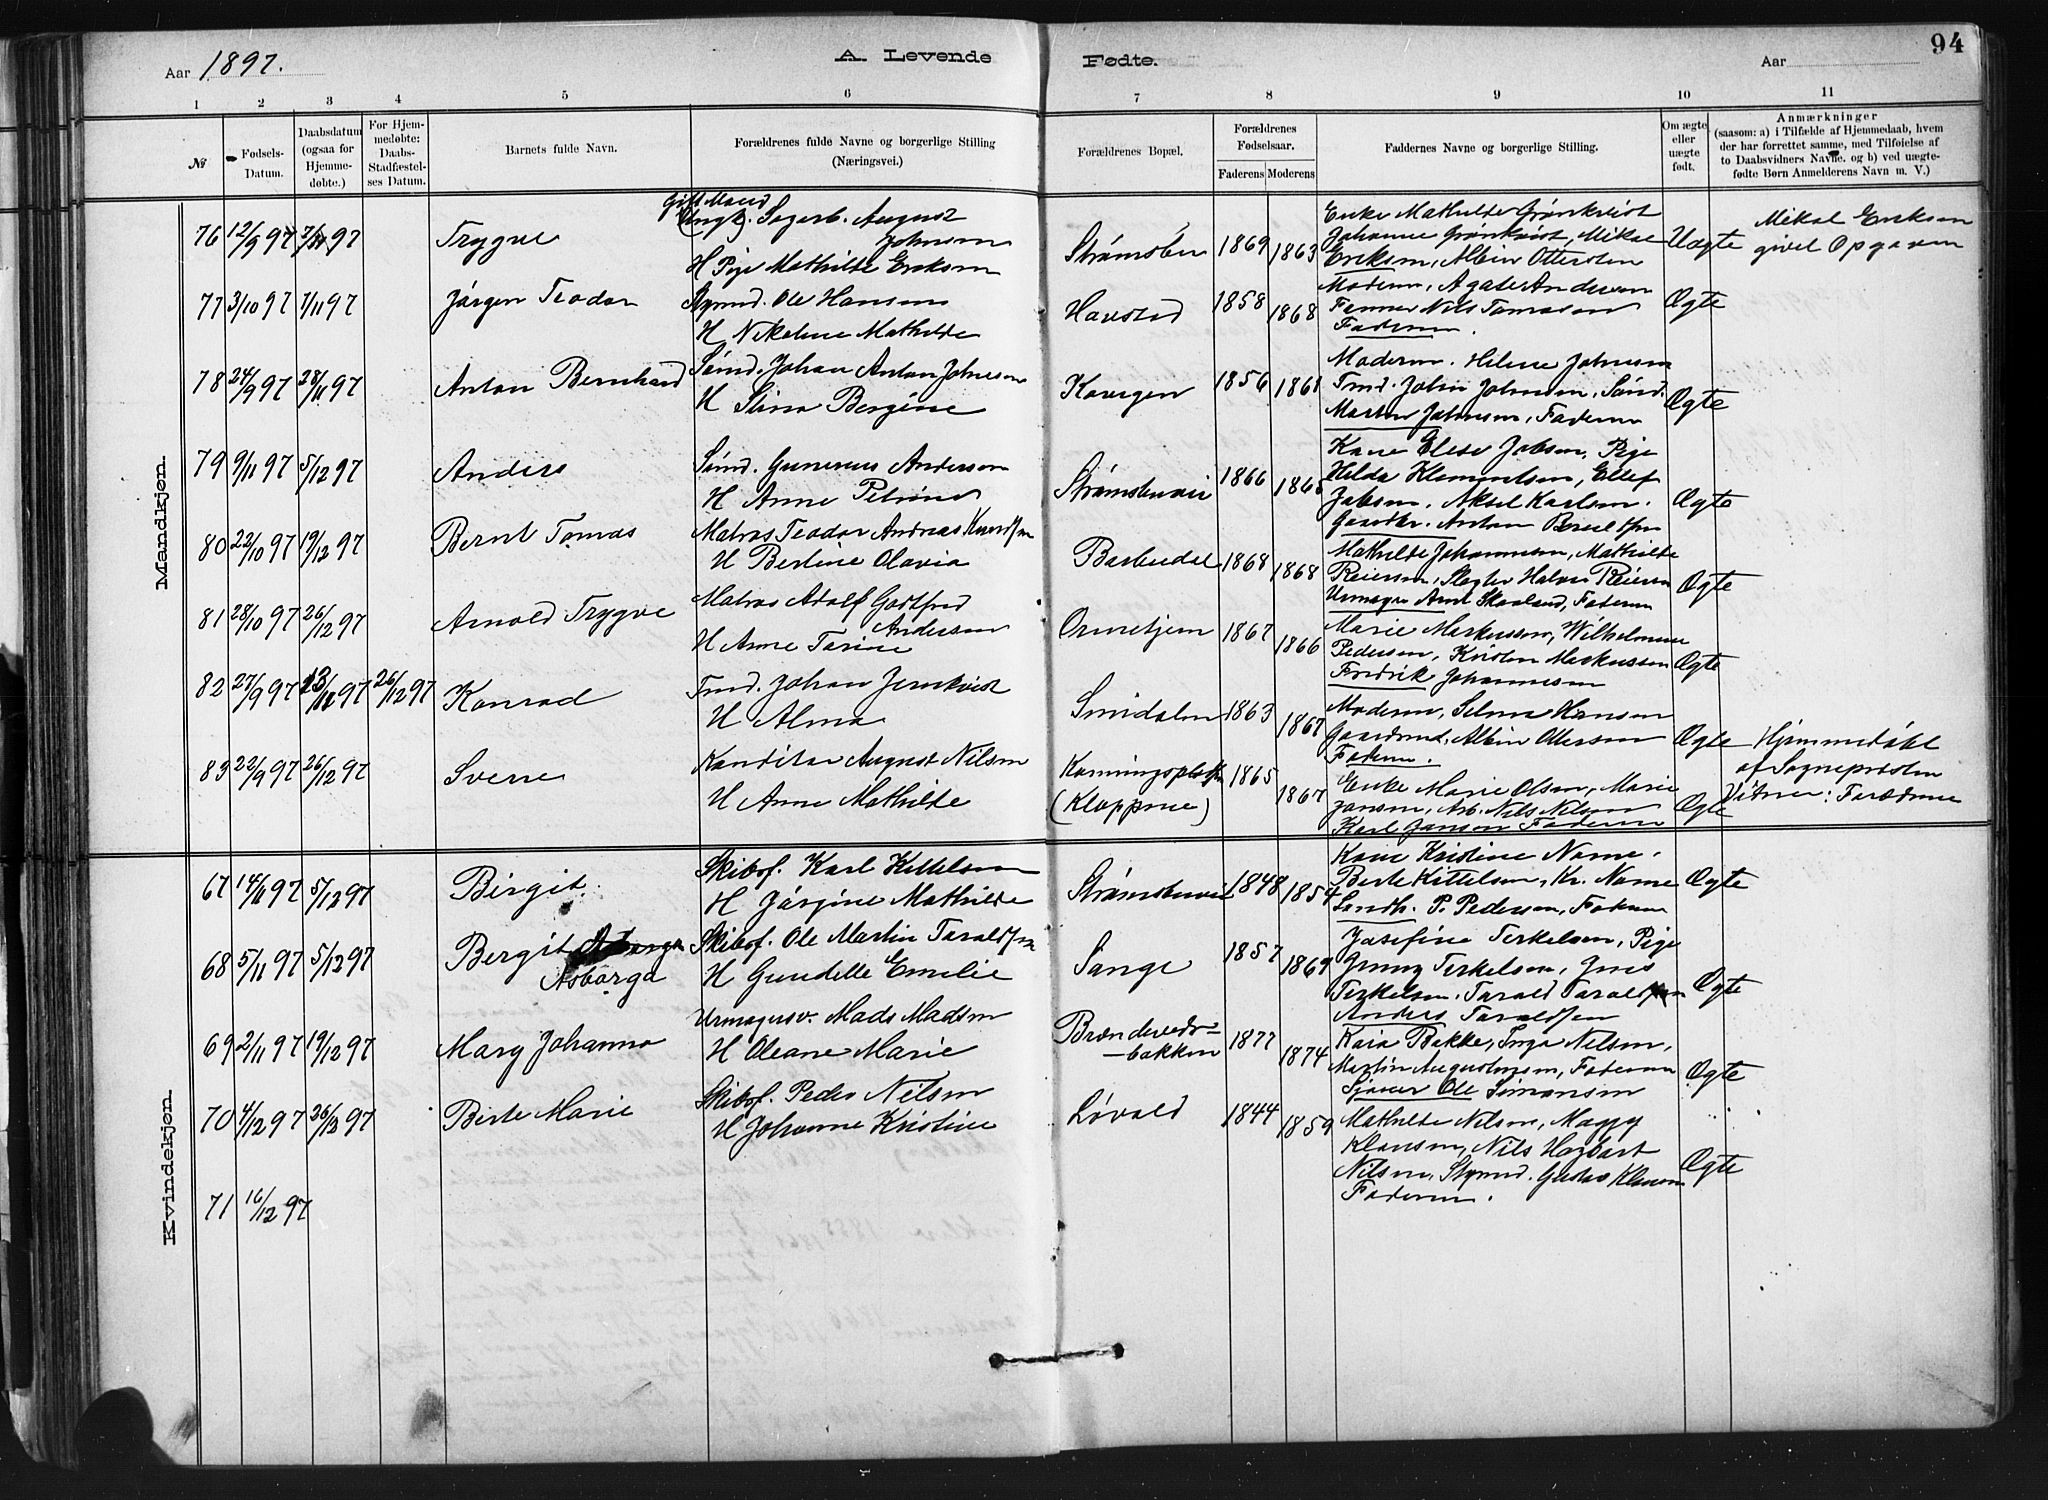 Aar 1897.
A. Levende Fødte.
Aar
94
1 2 3 4 5 6 7 8 9 10 11
№
Fødsels-Datum.
Daabsdatum (ogsaa for Hjemme-døbte.)
For Hjem-medøbte: Daabs-Stadfæstel-ses Datum.
Barnets fulde Navn.
Forældrenes fulde Navne og borgerlige Stilling (Næringsvei.)
Forældrenes Bopæl.
Forældrenes Fødselsaar.
Faderens Moderens
Faddernes Navne og borgerlige Stilling.
Om ægte eller uægte født.
Anmærkninger
(saasom: a) i Tilfælde af Hjemmedaab, hvem der har forrettet samme, med Tilføielse af to Daabsvidners Navne. og b) ved uægte-fødte Børn Anmelderens Navn m. V.)
Mandkjøn.
76 12/9 97 7/11 97
Trygve
Gift Mand
(Ungk). Sagarb. August
Johnsen
H Pige Mathilde Eriksen
Strømsbu
1869 1863
Enke Mathilde Grønkvist
Johanne Grønkvist, Mikal
Eriksen, Albin Ottersten
Uægte
Mikal Eriksen
givet Opgaven
77 3/10 97 7/11 97
Jørgen Teodor
Stymd. Ole Hansen
H Nikoline Mathilde
Havstad
1858 1868
Moderen, Agate Andersen
Tømmer Nils Tomassen
Faderen.
Ægte
78 24/9 97 28/11 97
Anton Bernhard
Sømd. Johan Anton Johnsen
H Stina Bergine
Kavegen
1856 1861
Moderen. Hilene Johnsen
Tmd. John Johnsen, Sømd.
Martin Johnsen, Faderen
Ægte
79 9/11 97 5/12 97
Anders
Sømd. Gunerius Andersen
H Anne Petrine
Strømsbuvei
1866 1865
Kane Elise Jobsen, Pige
Hilda Klementsen, Ellef
Jobsen, Aksel Karlsen.
Gaardbr. Anton Bruelsen
Ægte
80 22/10 97 19/12 97
Bernt Tomas
Matros Teodor Andreas Knudsen
H Bertine Olavia
Barbudal
1868 1868
Mathilde Johannesen, Mathilde
Reiersen, Slagter Halvor Reiersen
Urmager Arnt Skaaland, Faderen
Ægte
81 28/10 97 26/12 97
Arnold Trygve
Matros Adolf Godtfred
Andersen
H Anne Tarine
Ormetjern
1867 1866
Marie Markussen, Wilhelmine
Pedersen, Kristen Markussen
Fredrik Johannesen
Ægte
82 27/9 97 13/11 97 26/12 97
Konrad
Tmd. Johan Jernkvist
H Alma
Smidalen
1863 1867
Moderen, Selma Hansen
Gaardmd. Albin Olersen
Faderen.
Ægte
Hjemmedøbt
af Sognepresten
Vidner: Forældrene
83 22/9 97 26/12 97
Sverre
Konditor August Nilsen
H Anne Mathilde
Kanningsplassen
(Kloppene)
1865 1867
Enke Marie Olsen, Marie
Jansen, Arb. Nils Nilsen
Karl Jansen Faderen
Ægte
Kvindekjøn.
67 14/11 97 5/12 97
Birgit.
Skibsf. Karl Kittelsen
H Jørgine Mathilde
Strømsbuvei
1848 1854
Kane Kristine Name.
Berte Kittelsen, Kr. Name
Landh. P. Pedersen, Faderen
Ægte
68 5/11 97 5/12 97
Bergit
Asborga
Skibsf. Ole Martin Taraldsen
H Gundelle Emelie
Sange
1857 1869
Josefine Terkelsen, Pige
Jenny Terkelsen, Jens
Terkelsen. Tarald Taraldsen
Anders Taraldsen
Ægte
69 2/11 97 19/12 97
Mary Johanna
Urmagersv. Mads Madsen
H Oleane Marie
Brændeveds-
-bakken
1877 1874
Kaia Bakke, Inga Nilsen,
Martin Augustinsen, Faderen
Sjauer Ole Simonsen
Ægte
70 4/12 97 26/12 97
Berte Marie
Skibsf. Peder Nilsen
H Johanne Kristine
Løvold
1844 1859
Mathilde Nilsen, Maggy
Klausen, Nils Hagbart
Nilsen, Stymd. Gustav Klausen
Faderen.
Ægte
71 16/12 97